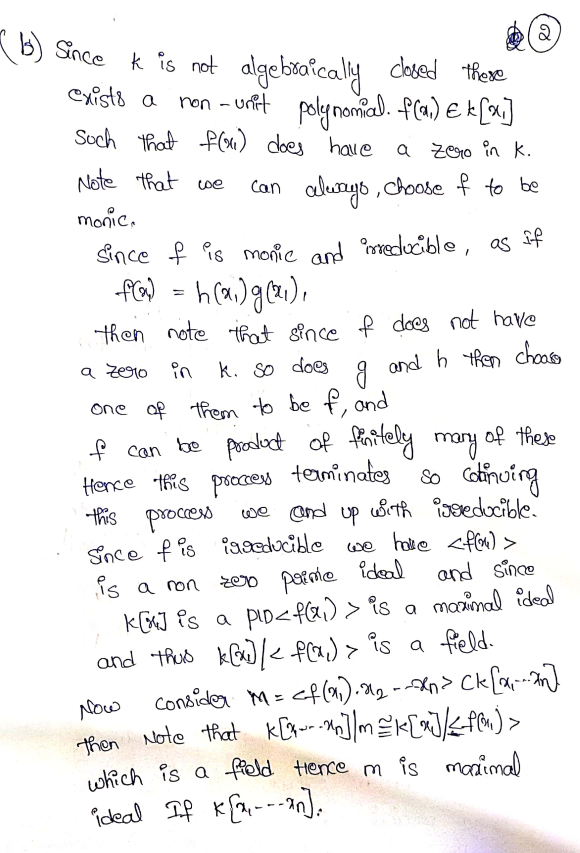 ②
(b) Since k is not algebraically closed there
exists a non-unit polynomial. f(x₁) ∈ k[x₁]
Such that f(x₁) does have a zero in k.
Note that we can always, choose f to be
monic.
Since f is monic and irreducible, as if
f(x₁) = h(x₁)g(x₁),
then note that since f does not have
a zero in k. so does g and h then choose
one of them to be f, and
f can be product of finitely many of these
Hence this process terminates so cotinuing
this process we end up with irreducible.
Since f is irreducible we have <f(x₁)>
is a non zero prime ideal and since
k[x₁] is a PID <f(x₁)> is a maximal ideal
and thus k[x₁]/<f(x₁)> is a field.
Now consider M = <f(x₁).x₂ ---xn> ⊂ k[x₁---xn]
then Note that k[x₁---xn]/m ≅ k[x₁]/<f(x₁)>
which is a field Hence m is maximal
ideal If k[x₁---xn].